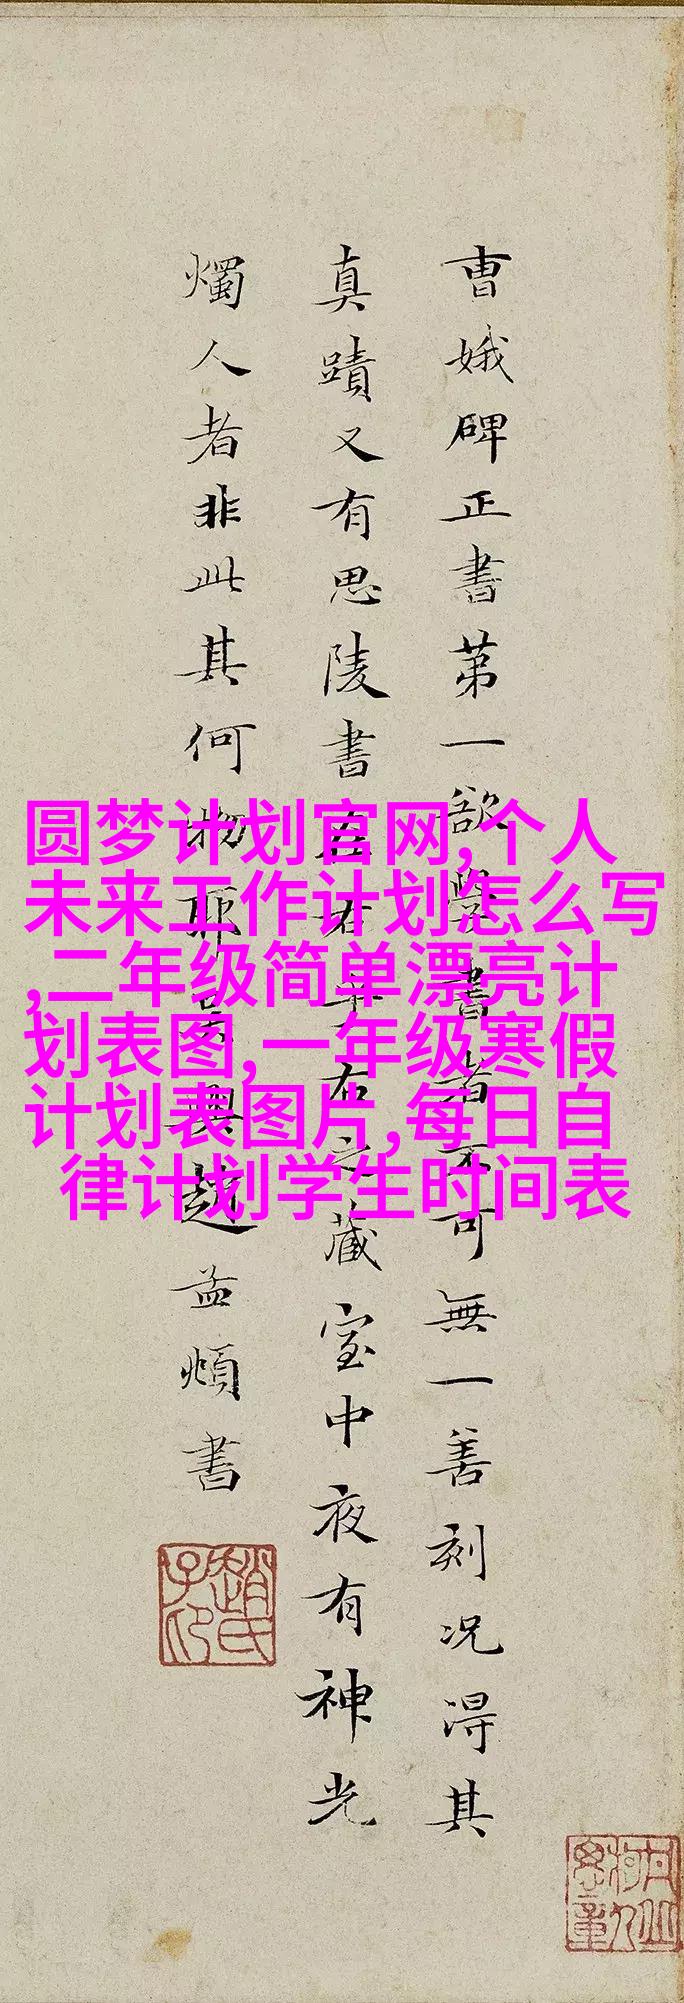 曹娥碑正書第一欲學書者不可無一善刻況得其
真蹟又有思陵書在右手右之藏室中夜有神光
燭人者非此其何物耶吳興趙孟頫書
趙氏子印
圆梦计划官网,个人
未来工作计划怎么写
,二年级简单漂亮计
划表图,一年级寒假
计划表图片,每日自
律计划学生时间表